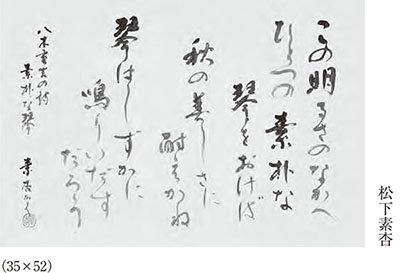 この明るさのなかへ
ひとつの素朴な
琴をおけば
秋の美しさに
耐えかね
琴はしずかに
鳴りいだす
だろう
八木重吉の詩
素朴な琴
素杏かく
松下素杏
(35×52)